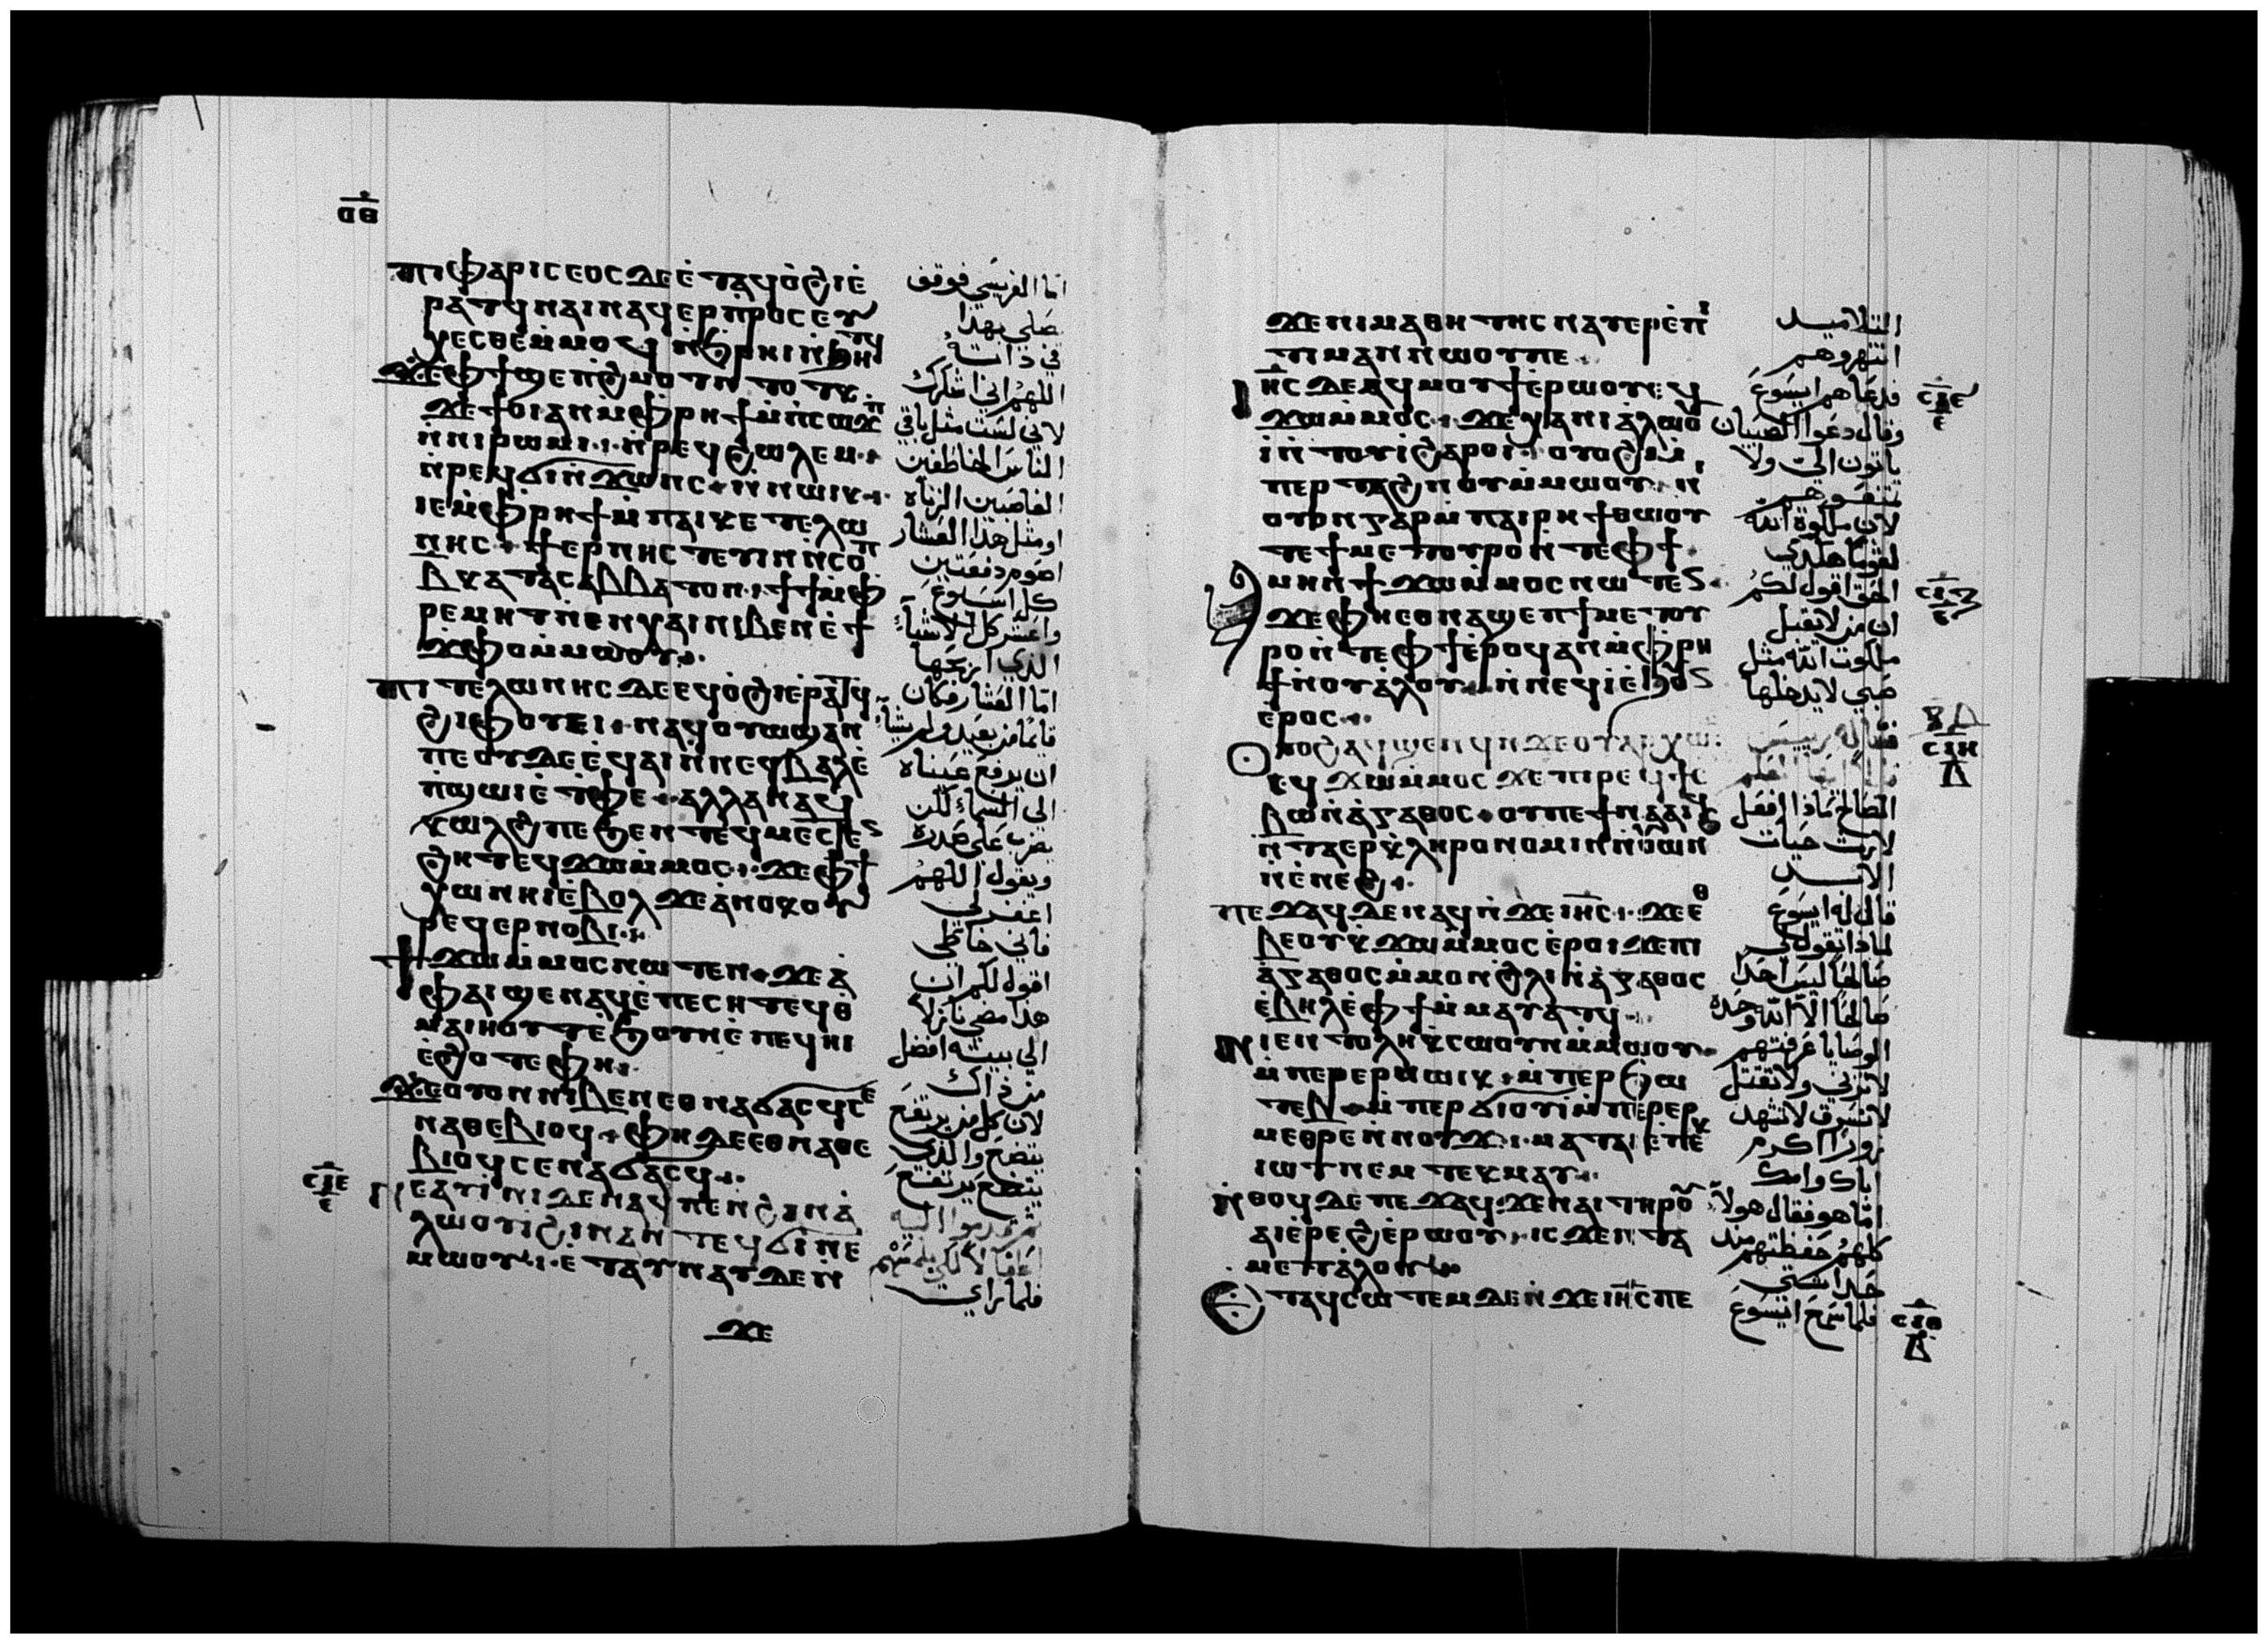 ⲟⲑ
ⲡⲓⲫⲁⲣⲓⲥⲉⲟⲥ ⲇⲉ ⲉⲧⲁϥⲟϩⲓ ⲉ
ⲣⲁⲧϥ ⲛⲁⲓ ⲛⲁϥⲉⲣⲡⲣⲟⲥⲉⲩ
ⲭⲉⲥⲑⲉ ⲙⲙⲟϥ ⲛϧⲣⲏⲓ ⲛϧⲏⲧϥ
ϫⲉ ⲫϯ ϣⲉⲡϩⲙⲟⲧ ⲛⲧⲟⲧⲕ
ϫⲉ ϯⲟⲓ ⲁⲛ ⲙⲫⲣⲏϯ ⲙⲡⲥⲱϫⲡ
ⲛⲛⲓⲣⲱⲙⲓ ⲛⲣⲉϥϩⲱⲗⲉⲙ
ⲛⲣⲉϥϭⲓⲛϫⲟⲛⲥ ⲛⲛⲱⲓⲕ
ⲓⲉ ⲙⲫⲣⲏϯ ⲙⲡⲁⲓⲕⲉⲧⲉⲗⲱ
ⲛⲏⲥ ϯⲉⲣⲛⲏⲥⲧⲉⲩⲓⲛ ⲛⲥⲟⲡ
ⲃ ⲕⲁⲧⲁ ⲥⲁⲃⲃⲁⲧⲟⲛ ϯϯ ⲙⲫ
ⲣⲉⲙⲏⲧ ⲛⲉⲛⲭⲁⲓ ⲛⲓⲃⲉⲛ ⲉϯ
ϫⲫⲟ ⲙⲙⲱⲟⲩ
ⲡⲓⲧⲉⲗⲱⲛⲏⲥ ⲇⲉ ⲉϥⲟϩⲓ ⲉⲣⲁⲧϥ
ϩⲓⲫⲟⲩⲉⲓ ⲛⲁϥⲟⲩⲱϣ ⲁⲛ
ⲡⲉ ⲟⲩⲇⲉ ⲉϥⲁⲓ ⲛⲛⲉϥⲃⲁⲗ ⲉ
ⲡϣⲱⲓ ⲉⲧⲫⲉ ⲁⲗⲗⲁ ⲛⲁϥ
ⲕⲱⲗϩ ⲡⲉ ϧⲉⲛ ⲧⲉϥⲙⲉⲥⲧⲉⲛ
ϩⲏⲧ ⲉϥϫⲱ ⲙⲙⲟⲥ ϫⲉ ⲫϯ
ⲭⲱ ⲛⲏⲓ ⲉⲃⲟⲗ ϫⲉ ⲁⲛⲟⲕ ⲟⲩ
ⲣⲉϥⲉⲣⲛⲟⲃⲓ
ϯϫⲱ ⲙⲙⲟⲥ ⲛⲱⲧⲉⲛ ϫⲉ ⲁ
ⲫⲁⲓ ϣⲉⲛⲁϥ ⲉⲡⲉⲥⲏⲧ ⲉϥⲑ
ⲙⲁⲓⲏⲟⲩⲧ ⲉϧⲟⲩⲛ ⲉⲡⲉϥⲏⲓ
ⲉϩⲟⲧⲉ ⲫⲏ
ϫⲉ ⲟⲩⲟⲛ ⲛⲓⲃⲉⲛ ⲉⲑⲛⲁϭⲁⲥϥ ⲥⲉ
ⲛⲁⲑⲉⲃⲓⲟϥ ⲫⲏ ⲇⲉ ⲉⲑⲛⲁⲑⲉ
ⲃⲓⲟϥ ⲥⲉⲛⲁϭⲁⲥϥ
ⲥⲓⲉ
ⲛⲉⲁⲩⲓⲛⲓ ⲇⲉ ⲛⲁϥ ⲡⲉ ⲛϩⲁⲛⲁ
ⲗⲱⲟⲩⲓ ϩⲓⲛⲁ ⲛⲧⲉϥϭⲓⲛⲉ
ⲙⲱⲟⲩ ⲉⲧⲁⲩⲛⲁⲩ ⲇⲉ ⲛ
ϫⲉ
اما الفريسي فوقف
يصلي بهذا
في ذاته
اللهم اني اشكرك
لاني لست مثل باقي
الناس الخاطفين
الغاصبين الزناه
او مثل هذا العشار
اصوم دفعتين
كل اسبوع
واعشر كل الاشياء
الذي اربحها
اما العشار فكان
قايما من بعيد ولم يشا
ان يرفع عيناه
الى السماء لكن
يضرب على صدره
ويقول اللهم
اغفر لي
فاني خاطي
اقول لكم ان
هذا مضى نازلا
الى بيته افضل
من ذاك
لان كل من يرتفع
يتضع والذي
يتضع يرتفع
فلما راي
ϫⲉ ⲛⲓⲙⲁⲑⲏⲧⲏⲥ ⲛⲁⲩⲉⲣⲉⲡⲓ
ⲧⲓⲙⲁⲛ ⲛⲱⲟⲩ ⲡⲉ
ⲓⲏⲥ ⲇⲉ ⲁϥⲙⲟⲩϯ ⲉⲣⲱⲟⲩ ⲉϥ
ϫⲱ ⲙⲙⲟⲥ ϫⲉ ⲭⲁ ⲛⲓⲁⲗⲱⲟⲩ
ⲓ ⲛⲧⲟⲩⲓ ϩⲁⲣⲟⲓ ⲟⲩⲟϩ ⲙ
ⲡⲉⲣⲧⲁϩⲛⲟ ⲙⲙⲱⲟⲩ ⲛ
ⲟⲩⲟⲛ ⲅⲁⲣ ⲙⲡⲁⲓⲣⲏϯ ⲑⲱⲟⲩ
ⲧⲉ ϯⲙⲉⲧⲟⲩⲣⲟ ⲛⲧⲉ ⲫϯ
ⲁⲙⲏⲛ ϯϫⲱ ⲙⲙⲟⲥ ⲛⲱⲧⲉⲛ
ϫⲉ ⲫⲏ ⲉⲑⲛⲁϣⲉⲡ ϯⲙⲉⲧⲟⲩ
ⲣⲟ ⲛⲧⲉ ⲫϯ ⲉⲣⲟϥ ⲁⲛ ⲙⲫⲣⲏ
ϯ ⲛⲟⲩⲁⲗⲟⲩ ⲛⲛⲉϥⲓ ⲉϧⲟⲩⲛ
ⲉⲣⲟⲥ
ⲟⲩⲟϩ ⲁϥϣⲉⲛϥ ⲛϫⲉ ⲟⲩⲁⲣⲭⲱⲛ
ⲉϥϫⲱ ⲙⲙⲟⲥ ϫⲉ ⲡⲓⲣⲉϥϯⲥ
ⲃⲱ ⲛⲁⲅⲁⲑⲟⲥ ⲟⲩ ⲡⲉϯⲛⲁⲁⲓϥ
ⲛⲧⲁⲉⲣⲕⲗⲏⲣⲟⲛⲟⲙⲓⲛ ⲛⲟⲩⲱⲛϧ
ⲛⲉⲛⲉϩ
ⲡⲉϫⲁϥ ⲇⲉ ⲛⲁϥ ⲛϫⲉ ⲓⲏⲥ ϫⲉ ⲉⲑ
ⲃⲉⲟⲩ ⲕϫⲱ ⲙⲙⲟⲥ ⲉⲣⲟⲓ ϫⲉ ⲡⲓ
ⲁⲅⲁⲑⲟⲥ ⲙⲙⲟⲛ ϩⲗⲓ ⲛⲁⲅⲁⲑⲟⲥ
ⲉⲃⲏⲗ ⲉⲫϯ ⲙⲙⲁⲩⲁⲧϥ
ⲛⲓⲉⲛⲧⲟⲗⲏ ⲕⲥⲱⲟⲩⲛ ⲙⲙⲱⲟⲩ
ⲙⲡⲉⲣⲉⲣⲛⲱⲓⲕ ⲙⲡⲉⲣϧⲱ
ⲧⲉⲃ ⲙⲡⲉⲣϭⲓⲟⲩⲓ ⲙⲡⲉⲣⲉⲣ
ⲙⲉⲑⲣⲉ ⲛⲛⲟⲩϫ ⲙⲁⲧⲁⲓⲉ ⲡⲉⲕ
ⲓⲱⲧ ⲛⲉⲙ ⲧⲉⲕⲙⲁⲩ
ⲛⲑⲟϥ ⲇⲉ ⲡⲉϫⲁϥ ϫⲉ ⲛⲁⲓ ⲧⲏⲣⲟⲩ
ⲁⲓⲉⲣⲉϩ ⲉⲣⲱⲟⲩ ⲓⲥϫⲉⲛ ⲧⲁ
ⲙⲉⲧⲁⲗⲟⲩ
ⲉⲧⲁϥⲥⲱⲧⲉⲙ ⲇⲉ ⲛϫⲉ ⲓⲏⲥ ⲡⲉ
التلاميد
انتهروهم
فدعاهم ايسوع
وقال دعوا الصبيان
ياتون الي ولا
تمنعوهم
لان ملكوة الله
الحق اقول لكم
ان من لا يقبل
ملكوت الله مثل
صبي لا يدخلها
الصالح ماذا افعل
لارث حيات
الابد
قال له ايسوع
لماذا تقول لي
صالحا ليس احدا
صالحا الا الله وحده
الوصايا عرفتهم
لا تزني ولا تقتل
لا تسرق لا تشهد
زورا اكرم
اباك وامك
اما هو فقال هولا
كلهم حفظتهم مند
حداثتي
فلما سمع ايسوع
ⲥⲓⲏ
ⲥⲓⲑ